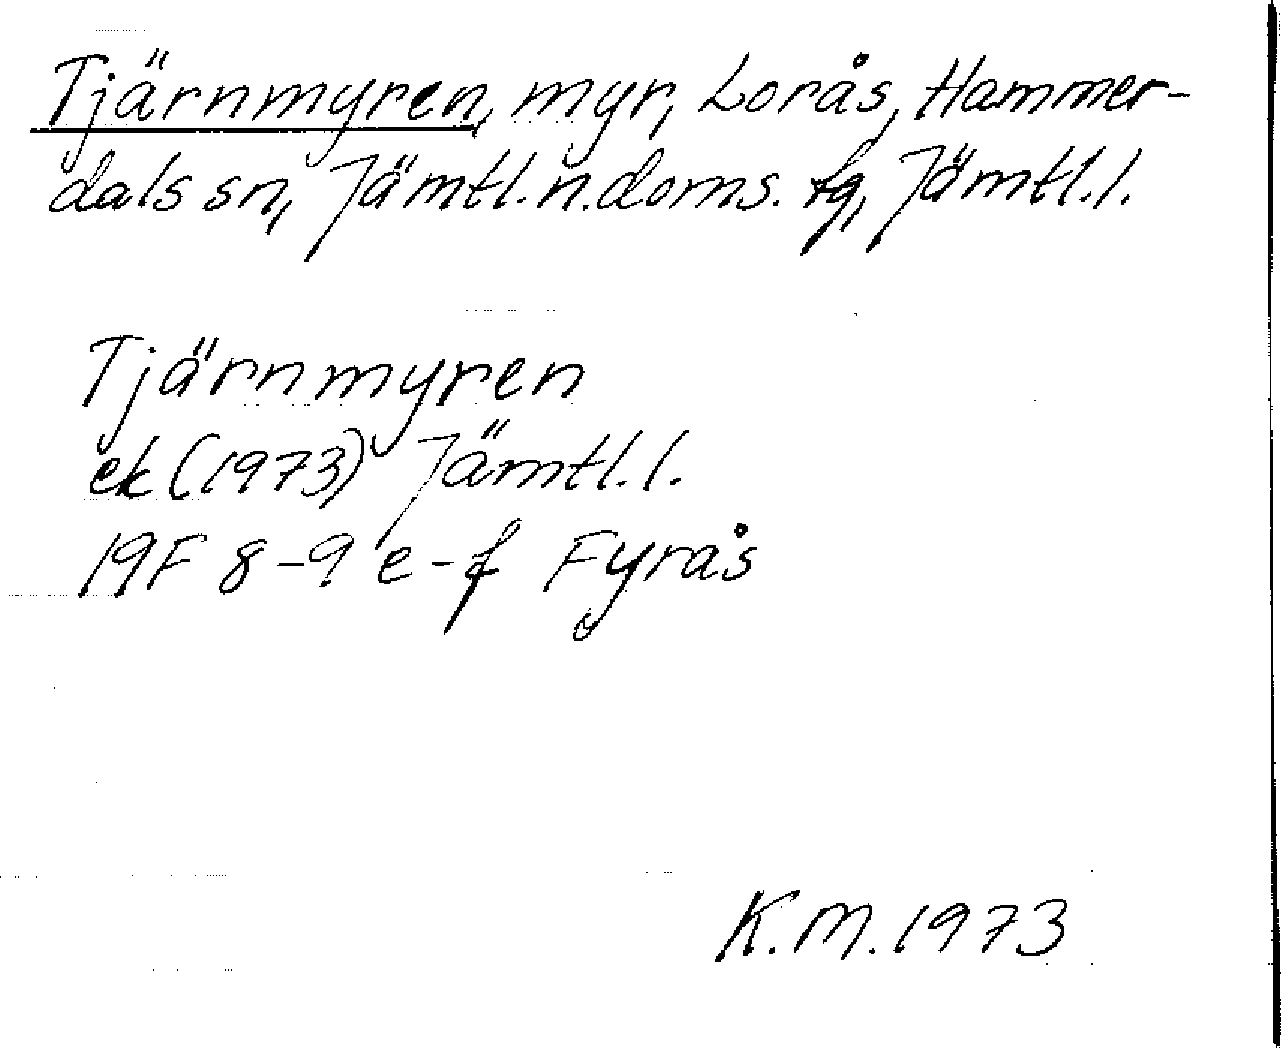 Tjärnmyren, myr, Lorås, Hammer-
dals sn, Jämtl. n. doms. fq, Jämtl. l.
Tjärnmyren
ek (1973) Jämtl. l.
19F 8-9 e-f Fyrås
K.M. 1973